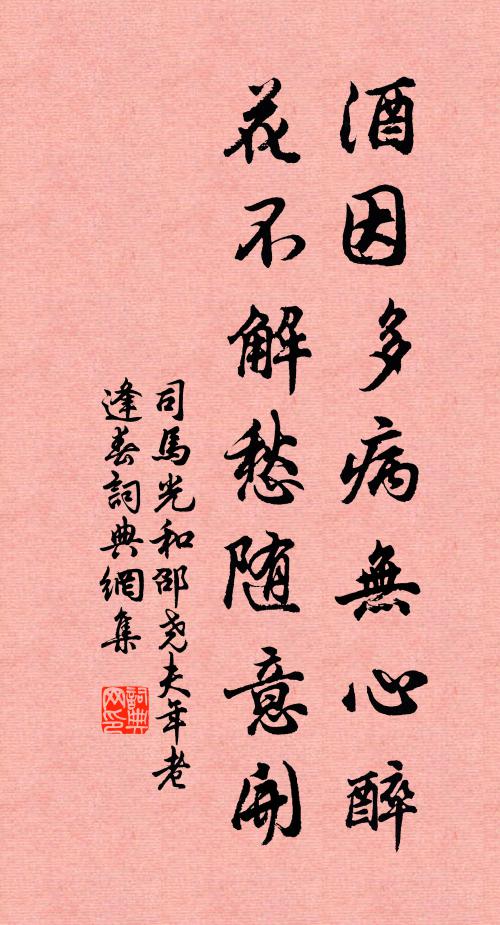 酒因多病無心醉
花不解愁随意開
司馬光和邵堯夫年老
逢春詞典網集
詞典網印